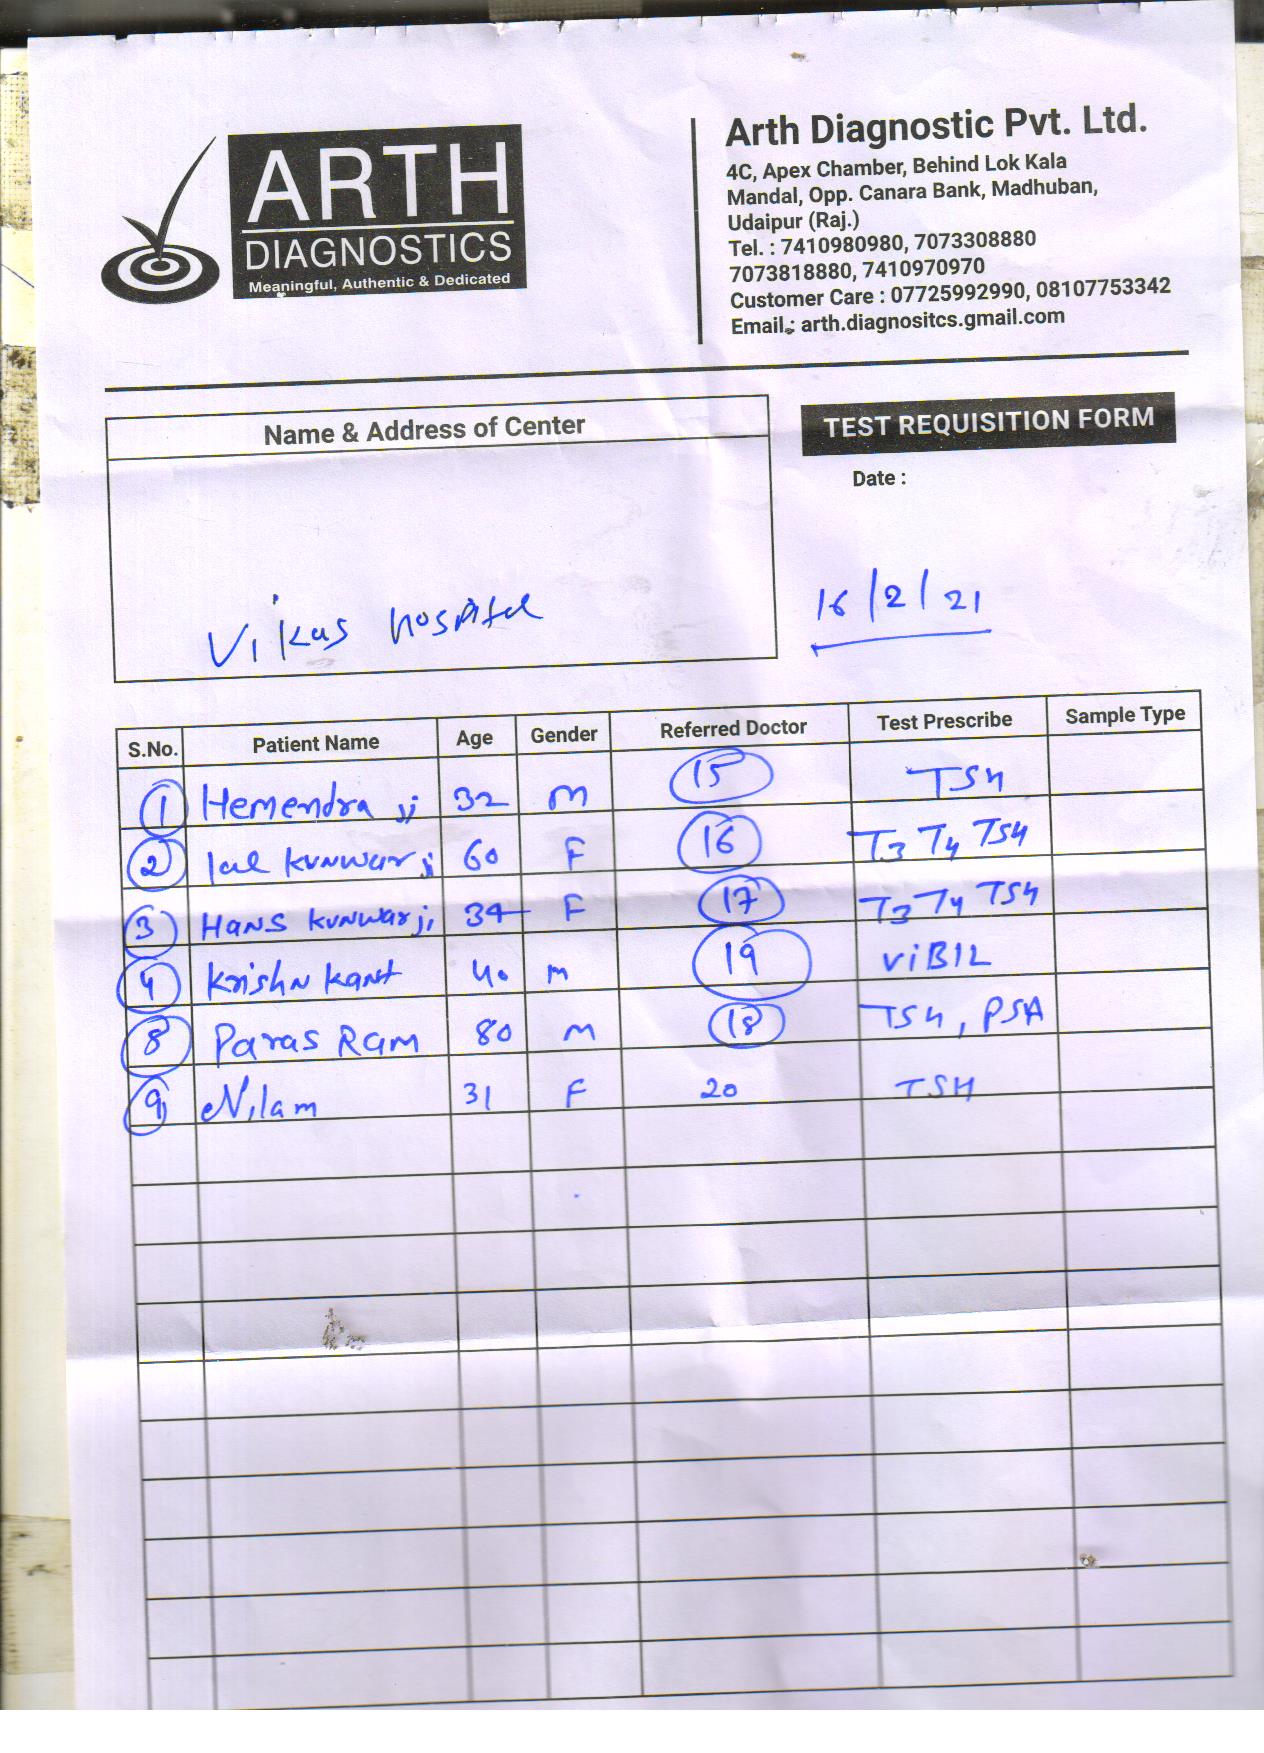 ARTH
DIAGNOSTICS
Meaningful, Authentic & Dedicated
Arth Diagnostic Pvt. Ltd.
4C, Apex Chamber, Behind Lok Kala
Mandal, Opp. Canara Bank, Madhuban,
Udaipur (Raj.)
Tel. : 7410980980, 7073308880
7073818880, 7410970970
Customer Care : 07725992990, 08107753342
Email : arth.diagnositcs.gmail.com
Name & Address of Center
Vikas hospital
TEST REQUISITION FORM
Date :
16/2/21
S.No. Patient Name Age Gender Referred Doctor Test Prescribe Sample Type
1 Hemendra ji 32 M 15 TSH
2 lal kunwar ji 60 F 16 T3 T4 TSH
3 Hans kunwar ji 34 F 17 T3 T4 TSH
4 Krishn kant 40 m 19 viBIL
8 Paras Ram 80 M 18 TSH, PSA
9 Nilam 31 F 20 TSH